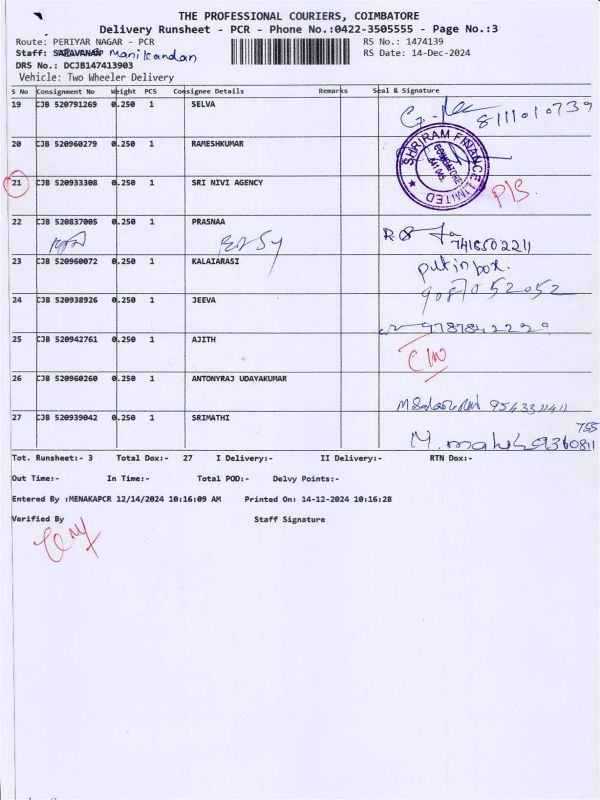 THE PROFESSIONAL COURIERS, COIMBATORE
Delivery Runsheet - PCR - Phone No.:0422-3505555 - Page No.:3
Route: PERIYAR NAGAR - PCR RS No.: 1474139
Staff: SARAVANAN Manikandan RS Date: 14-Dec-2024
DRS No.: DCJB147413903
Vehicle: Two Wheeler Delivery
S No Consignment No Weight PCS Consignee Details Remarks Seal & Signature
19 CJB 520791269 0.250 1 SELVA
8111010739
20 CJB 520960279 0.250 1 RAMESHKUMAR
SHRIRAM FINANCE LIMITED
COIMBATORE
21 CJB 520933308 0.250 1 SRI NIVI AGENCY
22 CJB 520837005 0.250 1 PRASNAA
7418502211
23 CJB 520960072 0.250 1 KALAIARASI
put in box.
9087052052
24 CJB 520938926 0.250 1 JEEVA
25 CJB 520942761 0.250 1 AJITH
26 CJB 520960260 0.250 1 ANTONYRAJ UDAYAKUMAR
27 CJB 520939042 0.250 1 SRIMATHI
755
9360811
Tot. Runsheet:- 3 Total Dox:- 27 I Delivery:- II Delivery:- RTN Dox:-
Out Time:- In Time:- Total POD:- Delvy Points:-
Entered By :MENAKAPCR 12/14/2024 10:16:09 AM Printed On: 14-12-2024 10:16:28
Verified By Staff Signature